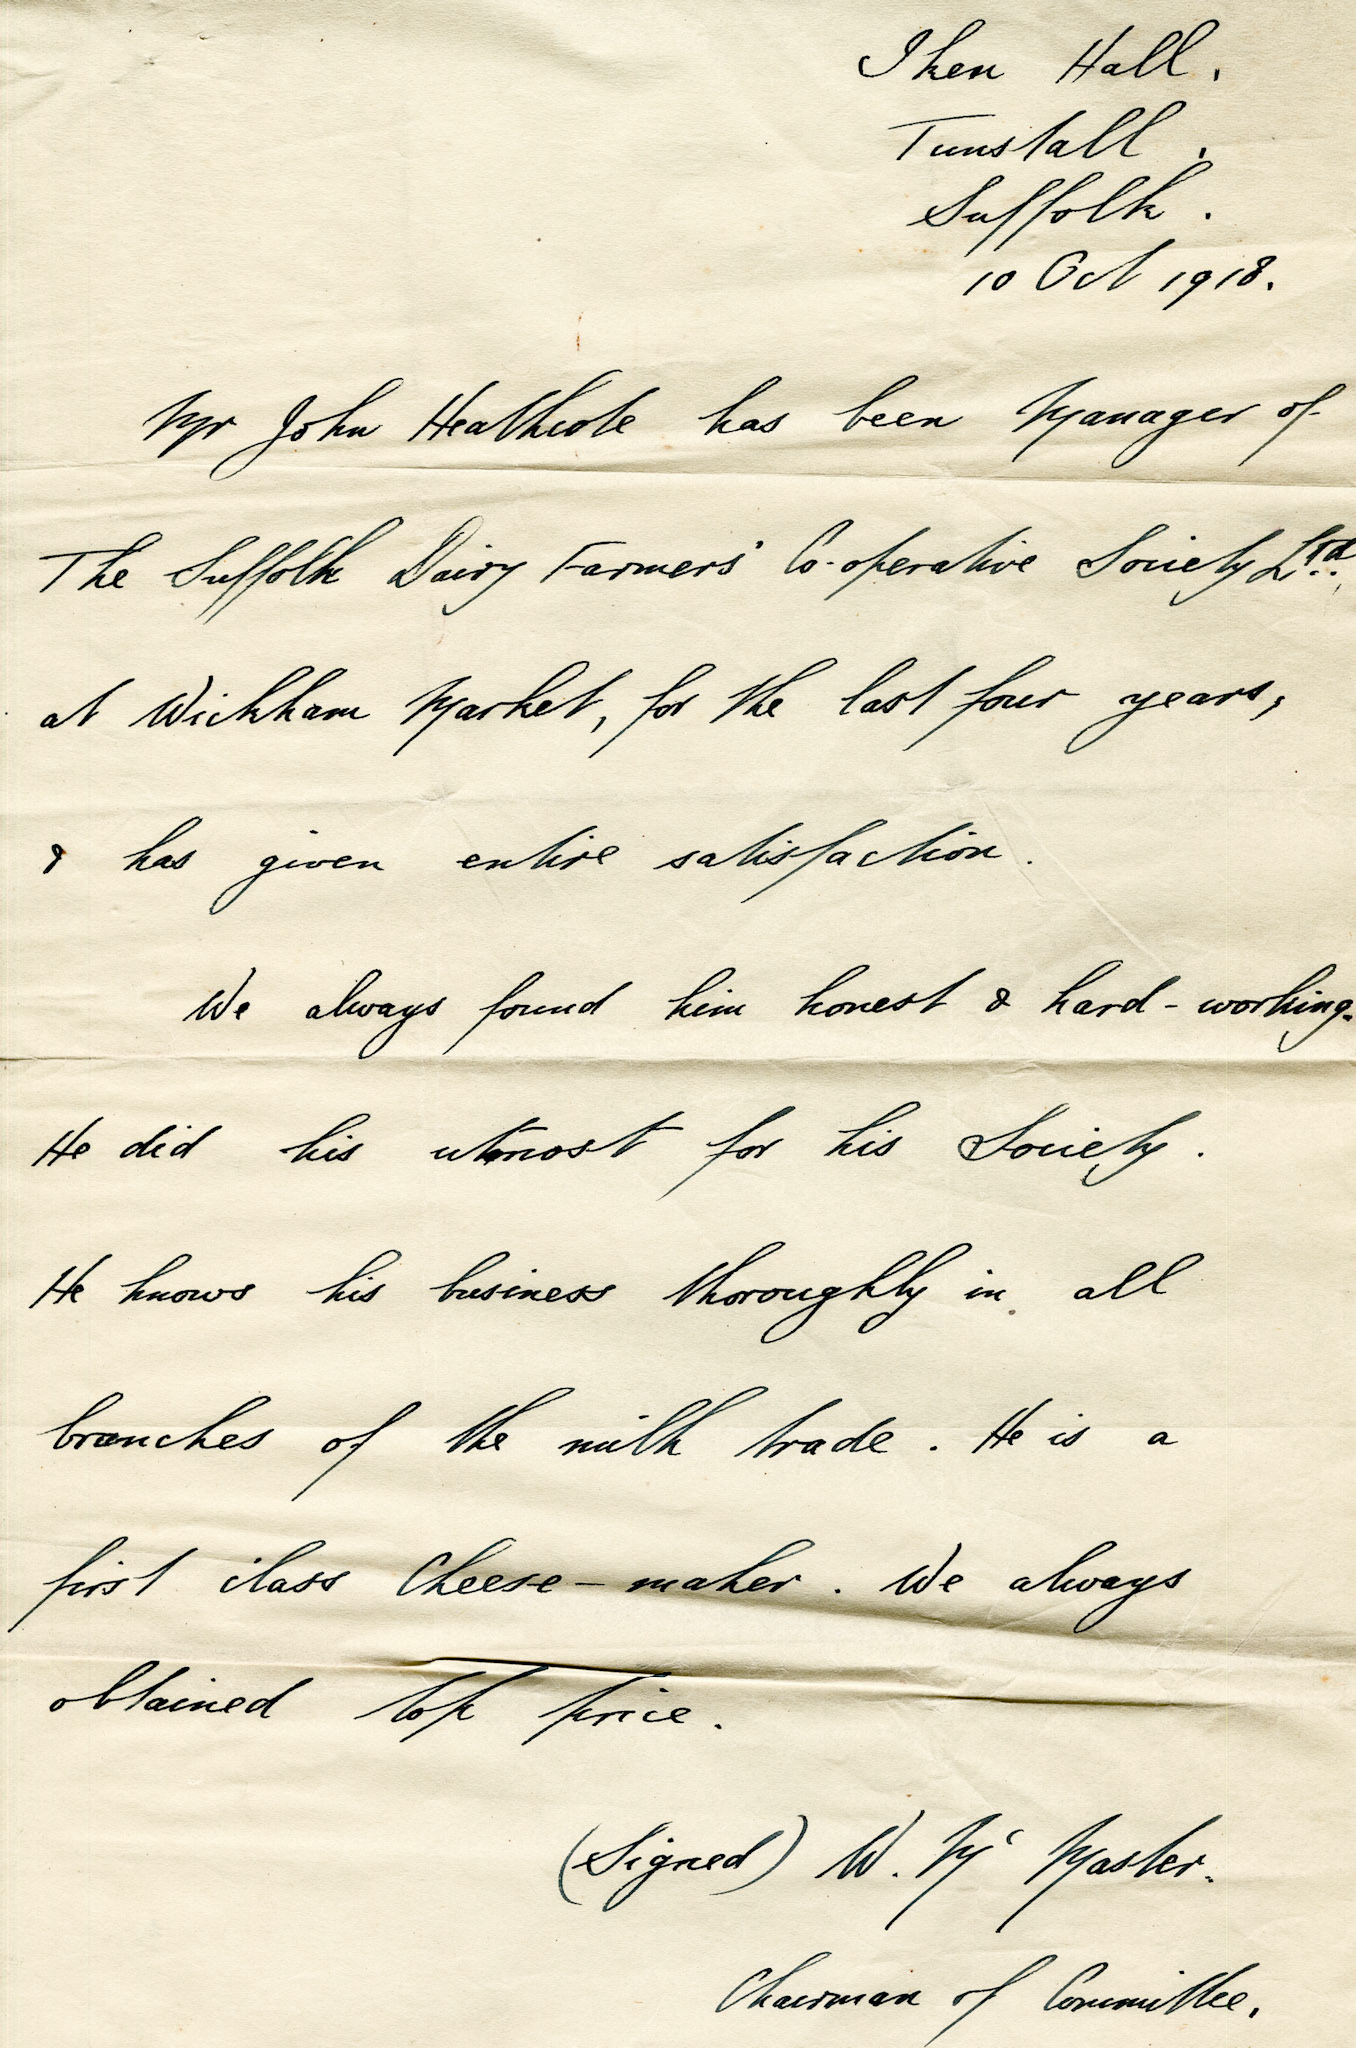 Iken Hall,
Tunstall,
Suffolk.
10 Oct 1918.
Mr John Heathcote has been Manager of
The Suffolk Dairy Farmers' Co-operative Society Ltd.,
at Wickham Market, for the last four years,
& has given entire satisfaction.
We always found him honest & hard-working.
He did his utmost for his Society.
He knows his business thoroughly in all
branches of the milk trade. He is a
first class Cheese-maker. We always
obtained top price.
(Signed) W. Mc Master.
Chairman of Committee.